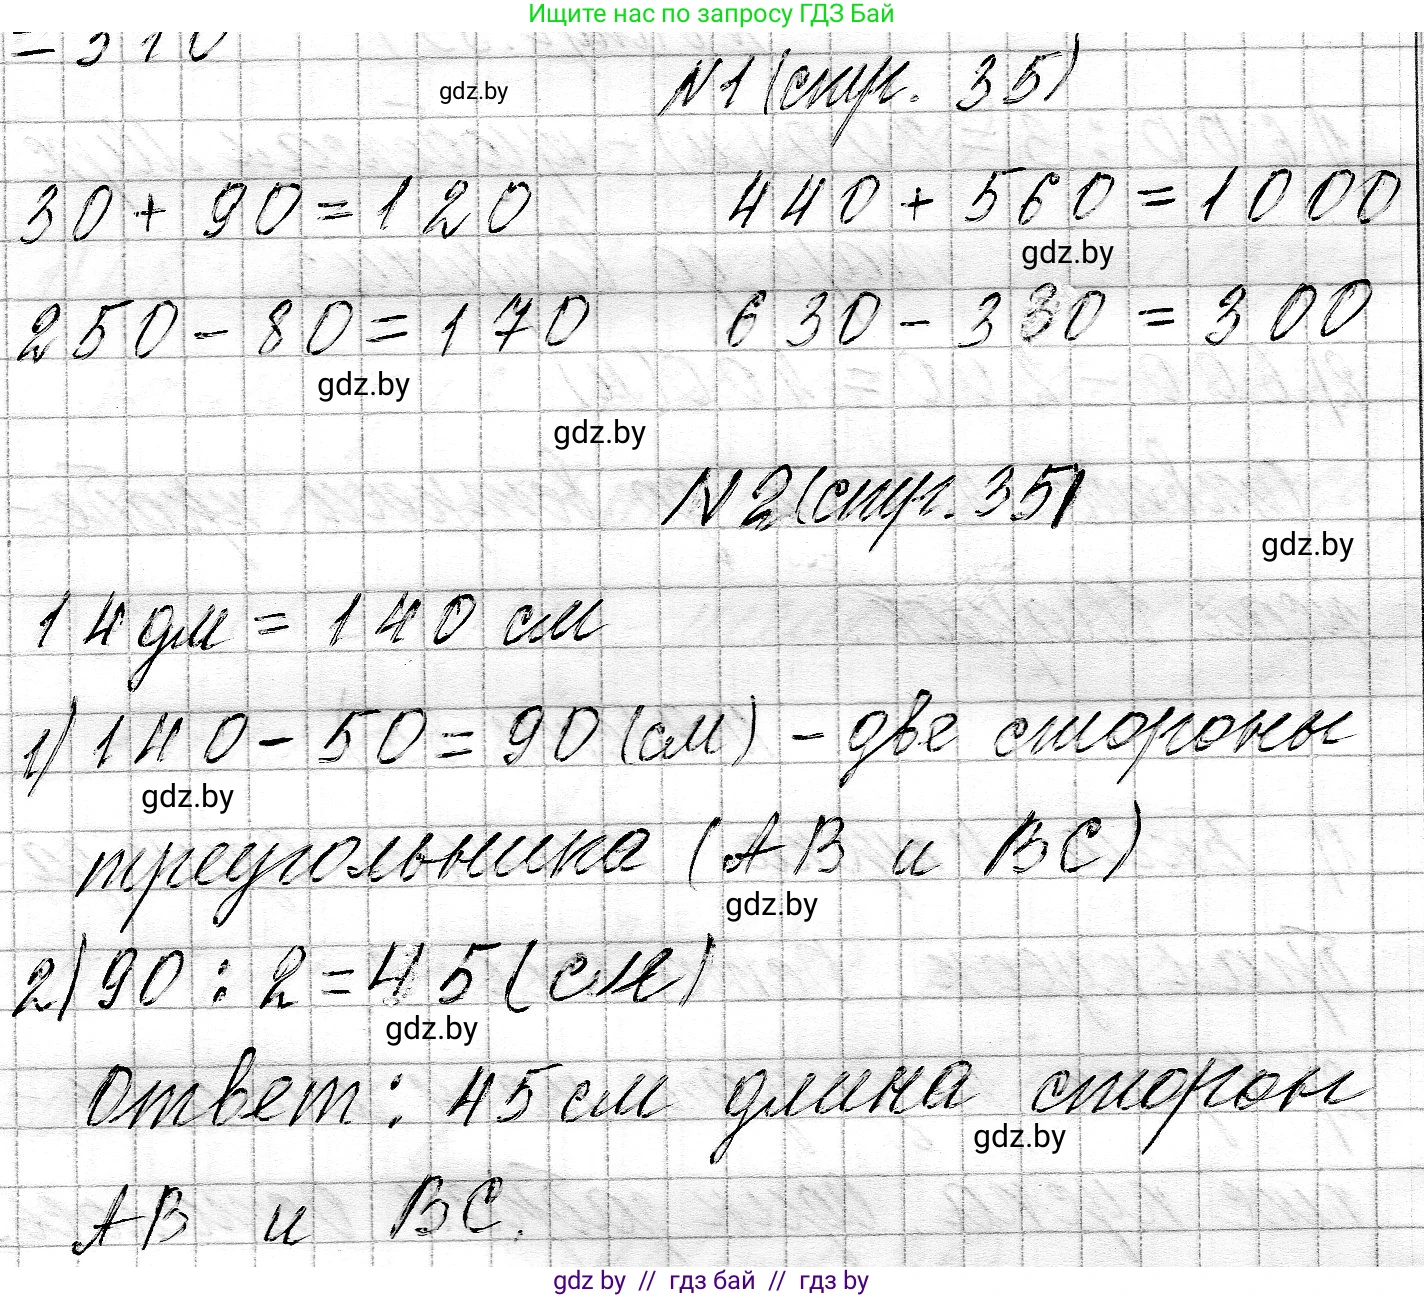 Ищите нас по запросу ГДЗ Бай
= 310
gdz.by
№1 (стр. 35)
30 + 90 = 120 440 + 560 = 1000
gdz.by
250 - 80 = 170 630 - 330 = 300
gdz.by
gdz.by
№2 (стр. 35)
gdz.by
14 дм = 140 см
1) 140 - 50 = 90 (см) - две стороны
gdz.by
треугольника (AB и BC)
gdz.by
2) 90 : 2 = 45 (см)
gdz.by
Ответ: 45 см длина сторон
gdz.by
AB и BC.
gdz by // гдз бай // гдз by